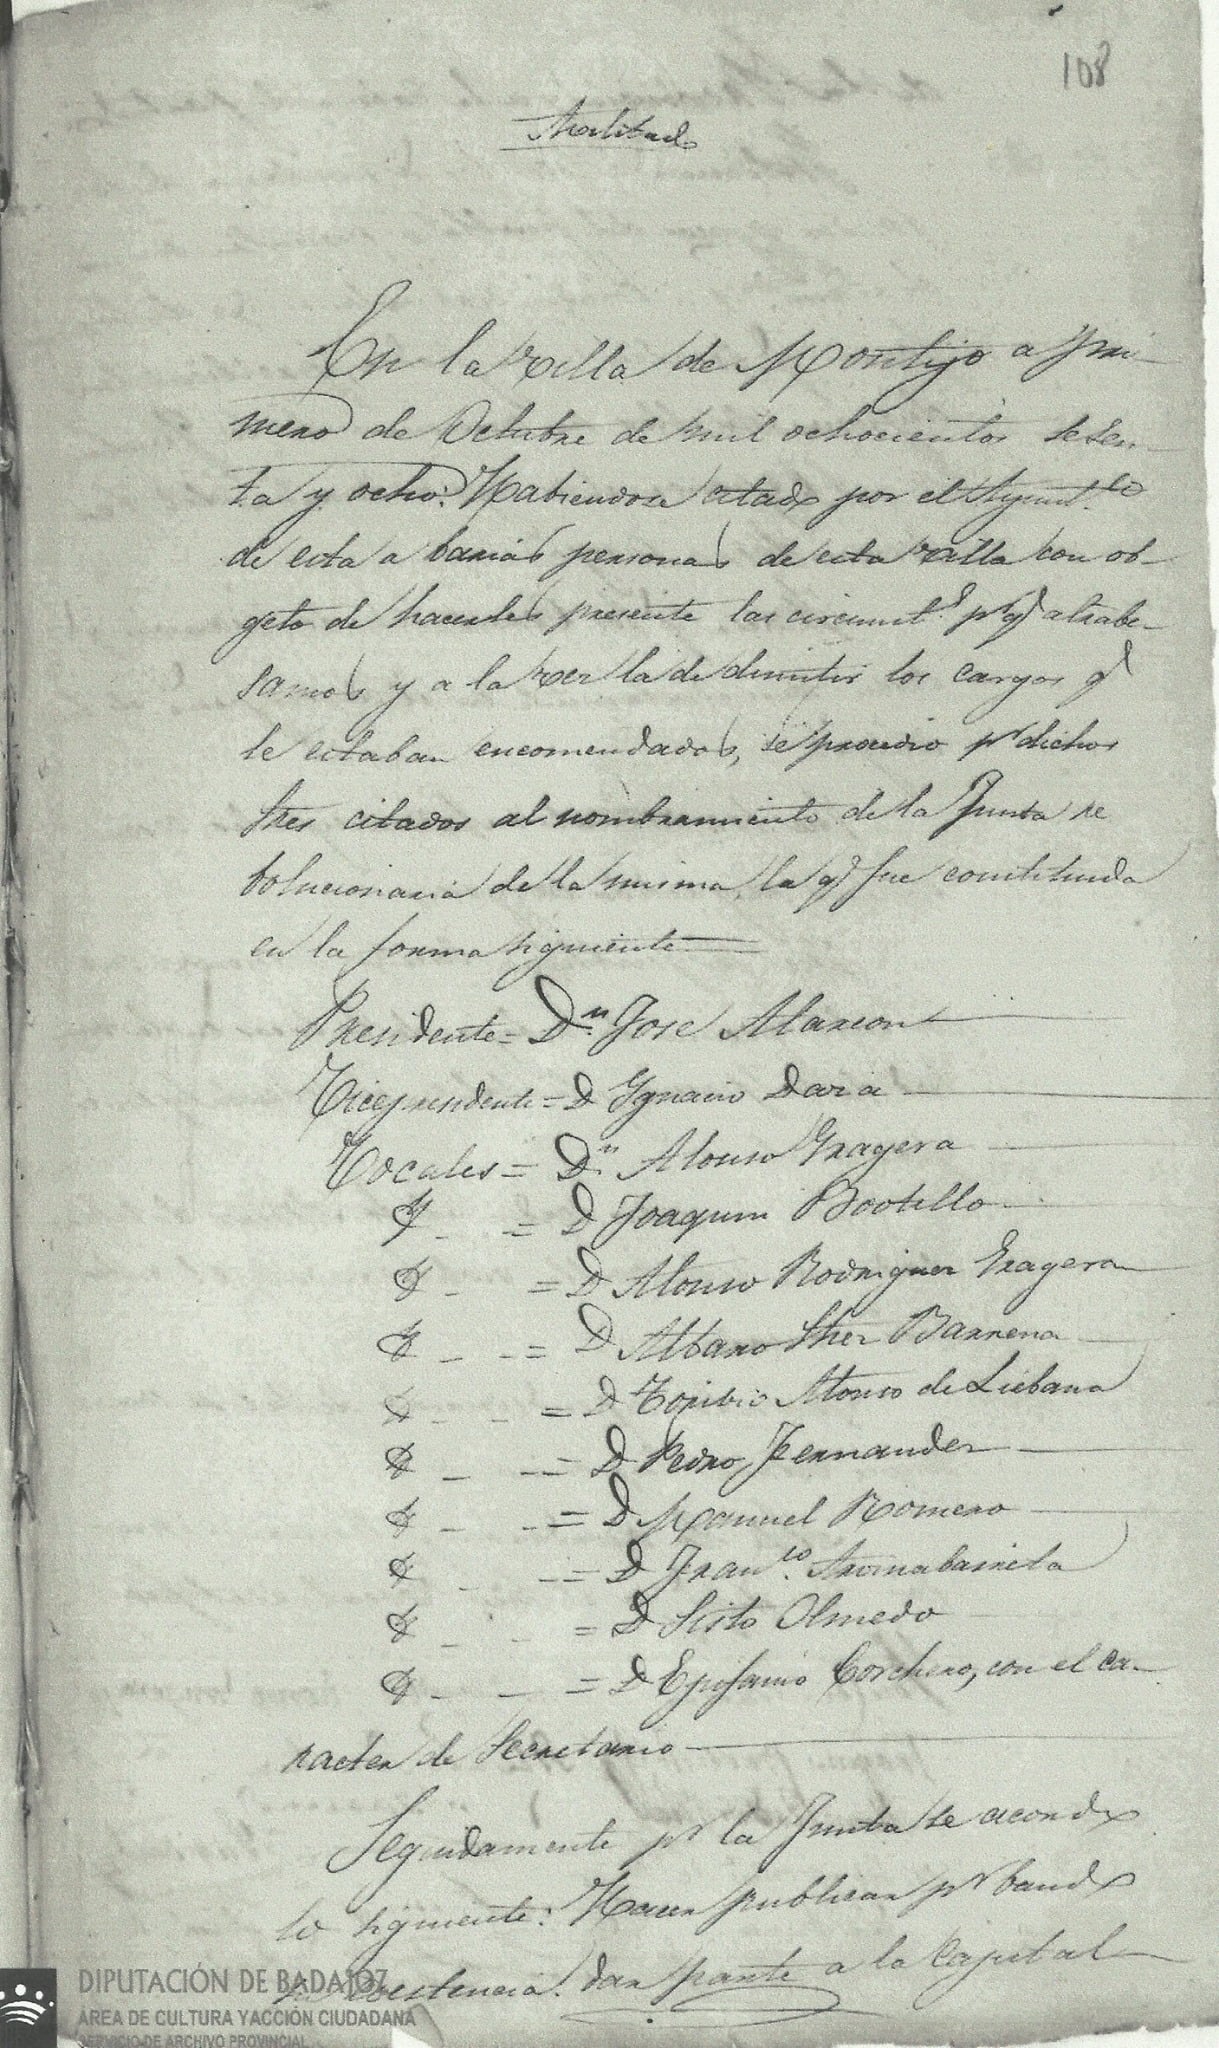 108
En la villa de Montijo a pri-
mero de Octubre de mil ochocientos sesen-
ta y ocho: Habiendose citado por el Ayunt.to
de esta a barias personas de esta villa con ob-
geto de hacerles presente las circunst.s pr q.e atrabe-
samos y a la vez la de dimitir los cargos q.e
le estaban encomendados, se procedio pr dichos
Sres citados al nombramiento de la Junta re
bolucionaria de la misma, la q.e fue constituida
en la forma siguiente
Presidente = D.n Jose Alarcon
Vicepresidente = D Ygnacio Daria
Vocales = D.n Alonso Gragera
Y = D Joaquin Bootello
Y = D Alonso Rodriguez Gragera
Y = D Albano Shez Barrena
Y = D Toribio Alonso de Liebana
Y = D Pedro Fernandez
Y = D Manuel Romero
Y = D Fran.co
Y = D Sisto Olmedo
Y = D Epifanio Corchero, con el ca-
racter de Secretario
Seguidamente pr la Junta se acordo
lo siguiente: Hacer publicar pr bando
su ecsistencia: dar parte a la Capital
DIPUTACIÓN DE BADAJOZ
ÁREA DE CULTURA Y ACCIÓN CIUDADANA
SERVICIO DE ARCHIVO PROVINCIAL